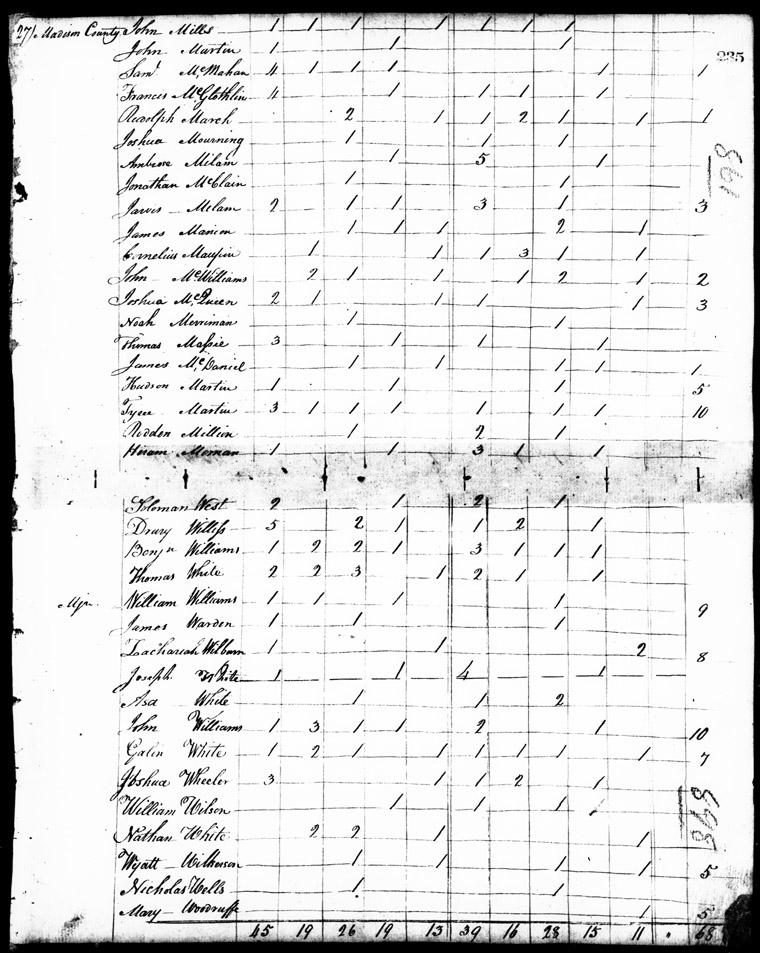 27/ Madison County John Mills 1 1 1 1 1 1 1
John Martin 1 1 1
235
Sam.l McMahan 4 1 1 1 1 1
Francis McGlothlin 4 1 1 1 1
Rudolph March 2 1 1 2 1 1 1
Joshua Mourning 1 1 1
Ambrose Milam 1 5 1
198
Jonathan McClain 1 1
Jarvis Milam 2 1 1 3 1 3
James Manion 1 1 1 2 1
Cornelius Maupin 1 1 1 3 1 1
John McWilliams 2 1 1 1 2 1 2
Joshua McQueen 2 1 1 1 1 3
Noah Merriman 1 1
Thomas Massie 3 1 1 1
James McDaniel 1 1 1 1 1
Hudson Martin 1 1 1 5
Tyree Martin 3 1 1 1 1 1 1 10
Rodden Million 1 2 1
Hiram Moman 1 1 3 1 1
Soloman West 2 1 2 1
Drury Williss 5 2 1 1 2 1
Benjn Williams 1 2 2 1 3 1 1 1
Thomas White 2 2 3 1 2 1 1
William Williams 1 1 1 1 9
James Warden 1 1 1
Zachariah Wilburn 1 1 2 8
Joseph White 1 1 4 1
Asa White 1 1 2
John Williams 1 3 1 1 2 1 10
Galin White 1 2 1 1 1 1 1 1 7
Joshua Wheeler 3 1 1 2 1
William Wilson 1 1 1
898
Nathan White 2 2 1 1
Wyatt Wilkerson 1 1 1 1 5
Nicholas Wells 1 1
Mary Woodruffe 1 5
45 19 26 19 13 39 16 28 15 11 " 68